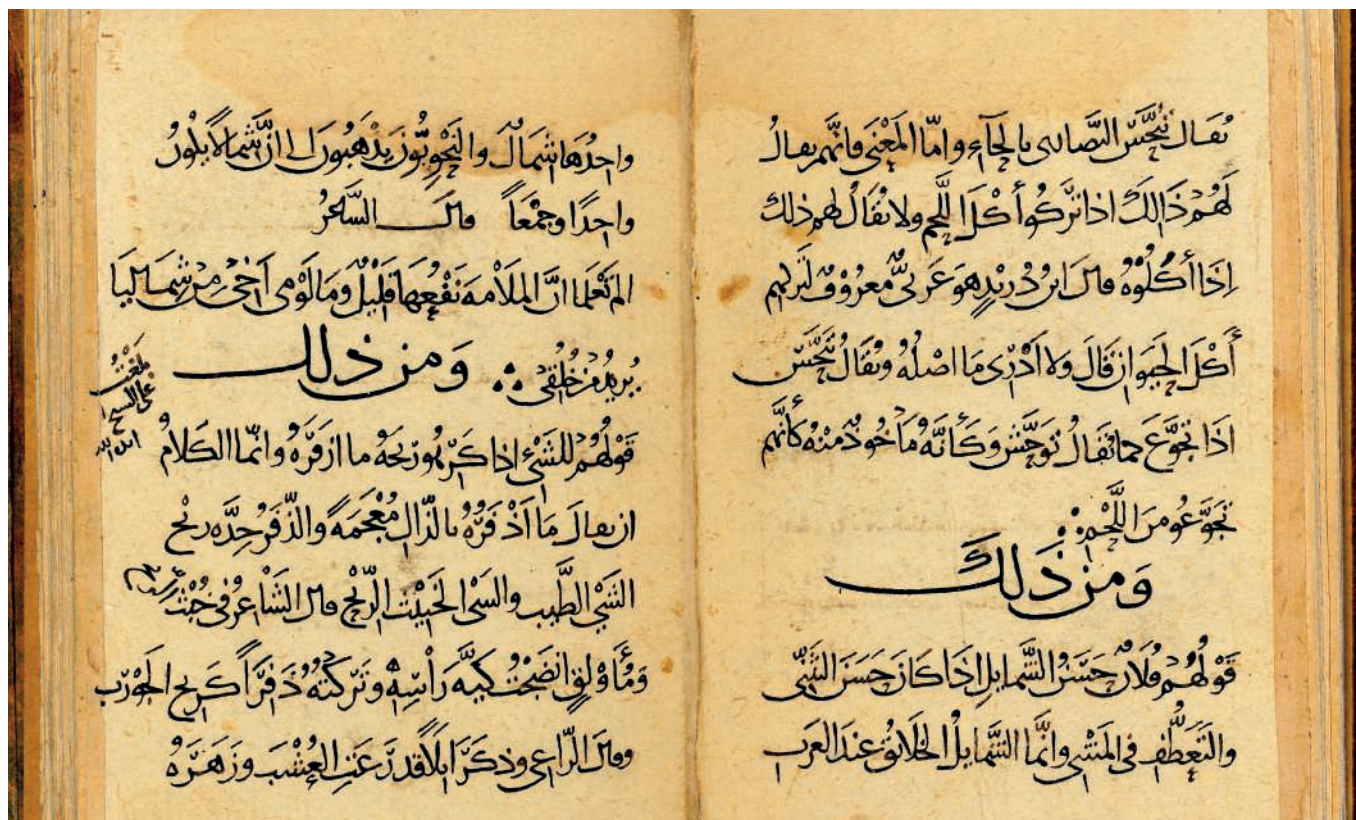 يقال تنحّس النصارى بالحاء وامّا المعنى فانهم يقال
لهُم ذَالكَ اذا تركوا أكلَ اللَّحم ولا يُقَالُ لهم ذلك
اِذَا أكلُوْهُ قال ابن دريدٍ هو عَربىٌّ معروفٌ لتركهم
أكْلَ الحيوان قَالَ ولا اَدْرِى مَا اصْلُهُ ويُقَالُ تنحَّسَ
اذَا تجوَّعَ كما يُقَالُ توَحَّشَ وَكأنَّهُ مأخوذٌ منهُ كأنَّهم
تجوَّعُو من اللَّحْمِ
وَمن ذَلكَ
قَولُهُم فُلانٌ حَسَنُ الشَّمايلِ اِذَا كانَ حَسَنَ التَّثَنِّى
والتَعَطُّفِ فى المَشْىِ وانَّما الشَّمايلُ الخلائقُ عندَ العَرَب
واحِدُهَا شِمَالٌ والنَحْوِيُّونَ يَذْهَبُونَ الى انَّ شِمالًا يكُونُ
واحِدًا وجَمْعًا قال الشَّاعِرُ
الم تَعْلَمَا انَّ المَلاَمةَ نَفْعُهَا قليْلٌ وَمَا لَوْمى اَخىْ مِنْ شِمَاليَا
يُريدُ من خُلُقِى وَمن ذلك
بلغتُ
على الشيخ
ايده الله
قَوْلُهُم للشىْءِ اذا كَرِهُو ريْحَهُ ما ازفَرَهُ وانّما الكَلامُ
ان يقالَ مَا اَذْفَرَهُ بالذّالِ مُعْجَمَهً والذّفَرُ حِدّه ريْح
الشَىْءِ الطَّيب والشى الخَبيْثِ الرِّيْحِ قال الشَّاعرُ فى خُبْثِ
وَمُأَوْلِقٍ انضَجْتُ كيَّةَ رَأْسِهِ وَتَركْتُهُ ذَفِرًا كريح الجَوْرَب
وقال الرَّاعى وذكَرَ ابِلًا قد رَعَتِ العُشْبَ وَزَهَرَهُ